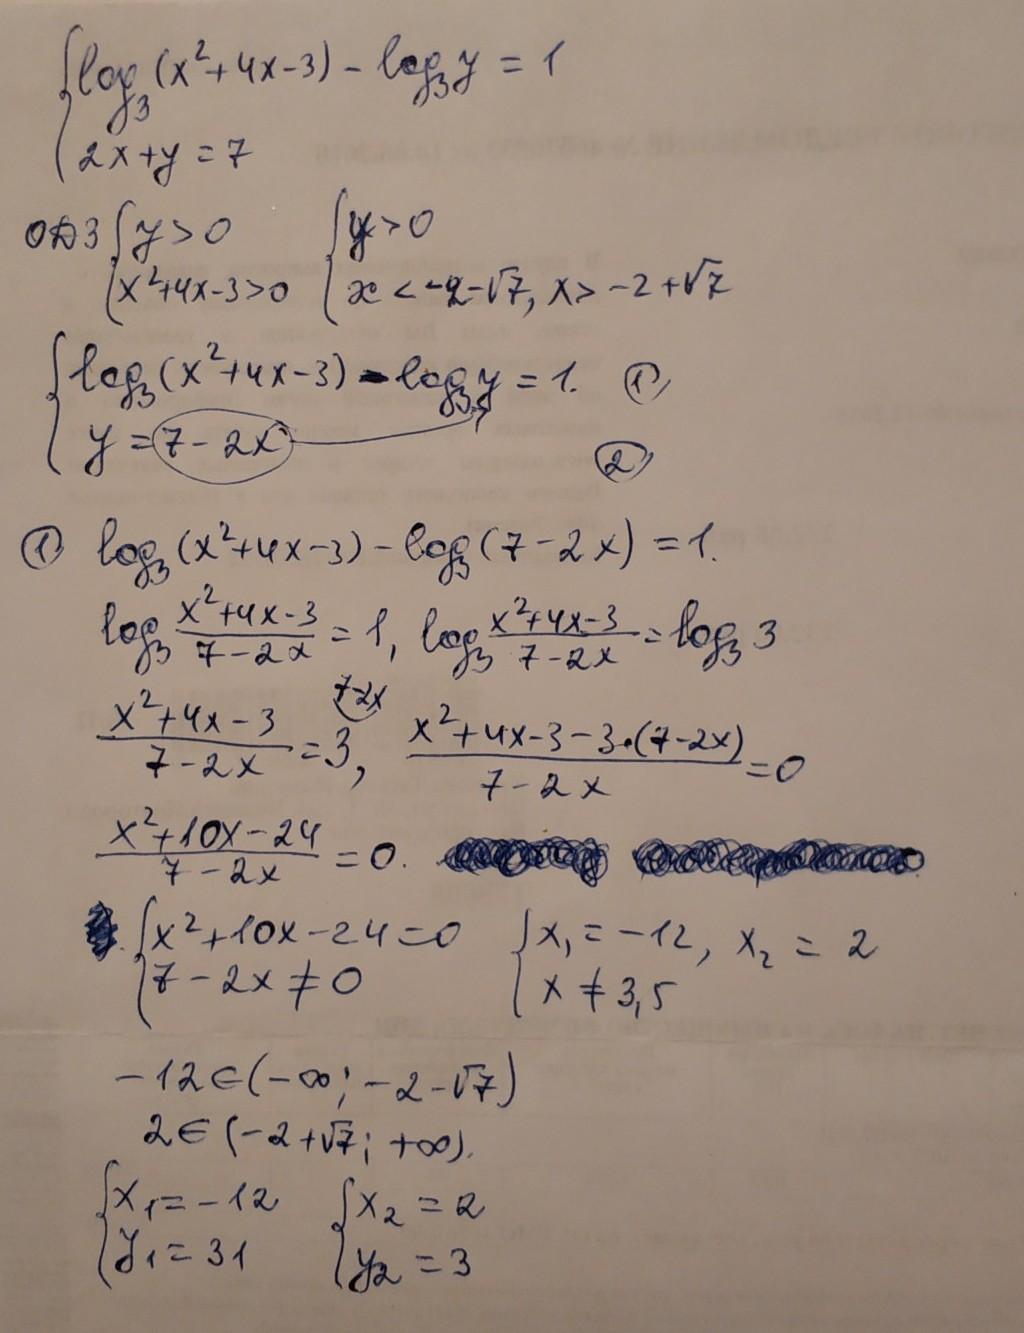 { log₃(x²+4x-3) - log₃y = 1
2x+y = 7
ОДЗ { y>0 { y>0
x²+4x-3>0 x<-2-√7, x>-2+√7
{ log₃(x²+4x-3) - log₃y = 1. ①
y = 7-2x ②
① log₃(x²+4x-3) - log₃(7-2x) = 1.
log₃ (x²+4x-3)/(7-2x) = 1, log₃ (x²+4x-3)/(7-2x) = log₃3
7-2x
(x²+4x-3)/(7-2x) = 3, (x²+4x-3-3·(7-2x))/(7-2x) = 0
(x²+10x-24)/(7-2x) = 0.
{ x²+10x-24=0 { x₁ = -12, x₂ = 2
7-2x≠0 x ≠ 3,5
-12∈(-∞; -2-√7)
2∈(-2+√7; +∞).
{ x₁=-12 { x₂ = 2
y₁ = 31 y₂ = 3